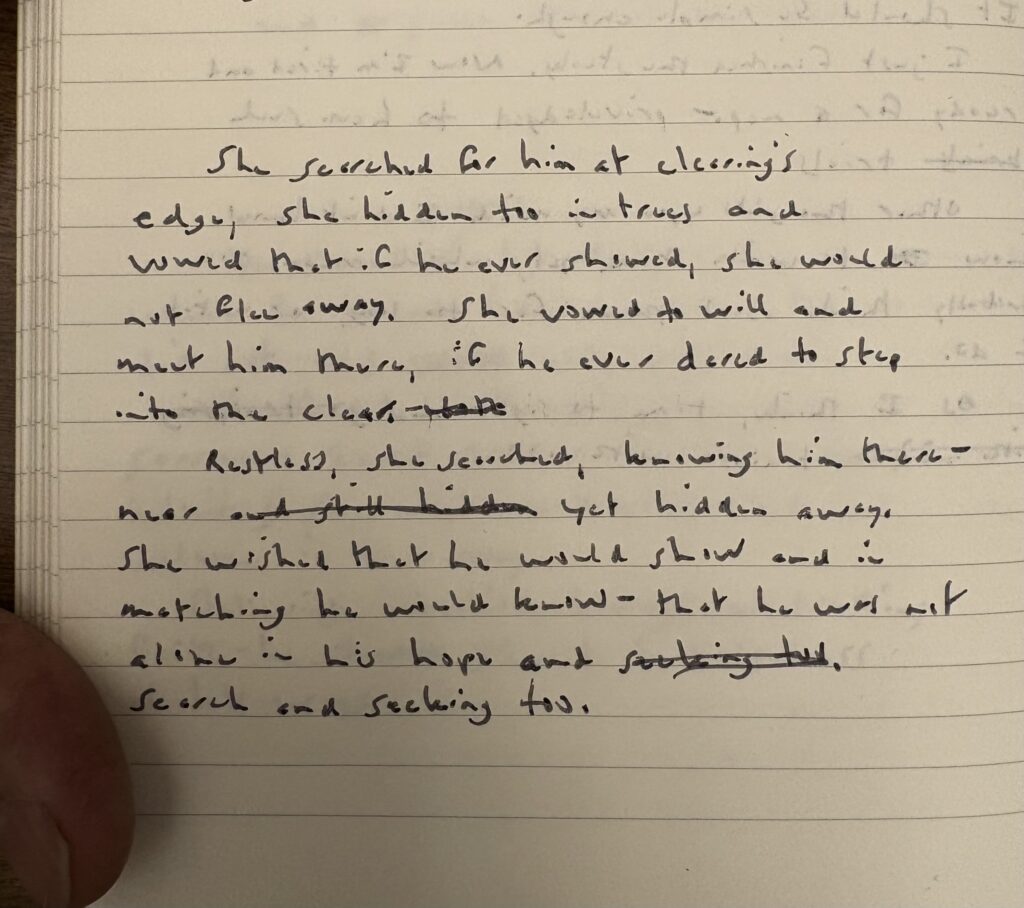 She searched for him at clearing's
edge, she hidden too in trees and
vowed that if he ever showed, she would
not flee away. She vowed to will and
meet him there, if he ever dared to step
into the clear.
Restless, she searched, knowing him there-
near and still hidden yet hidden away.
She wished that he would show and in
matching he would know- that he was not
alone in his hope and seeking too.
search and seeking too.